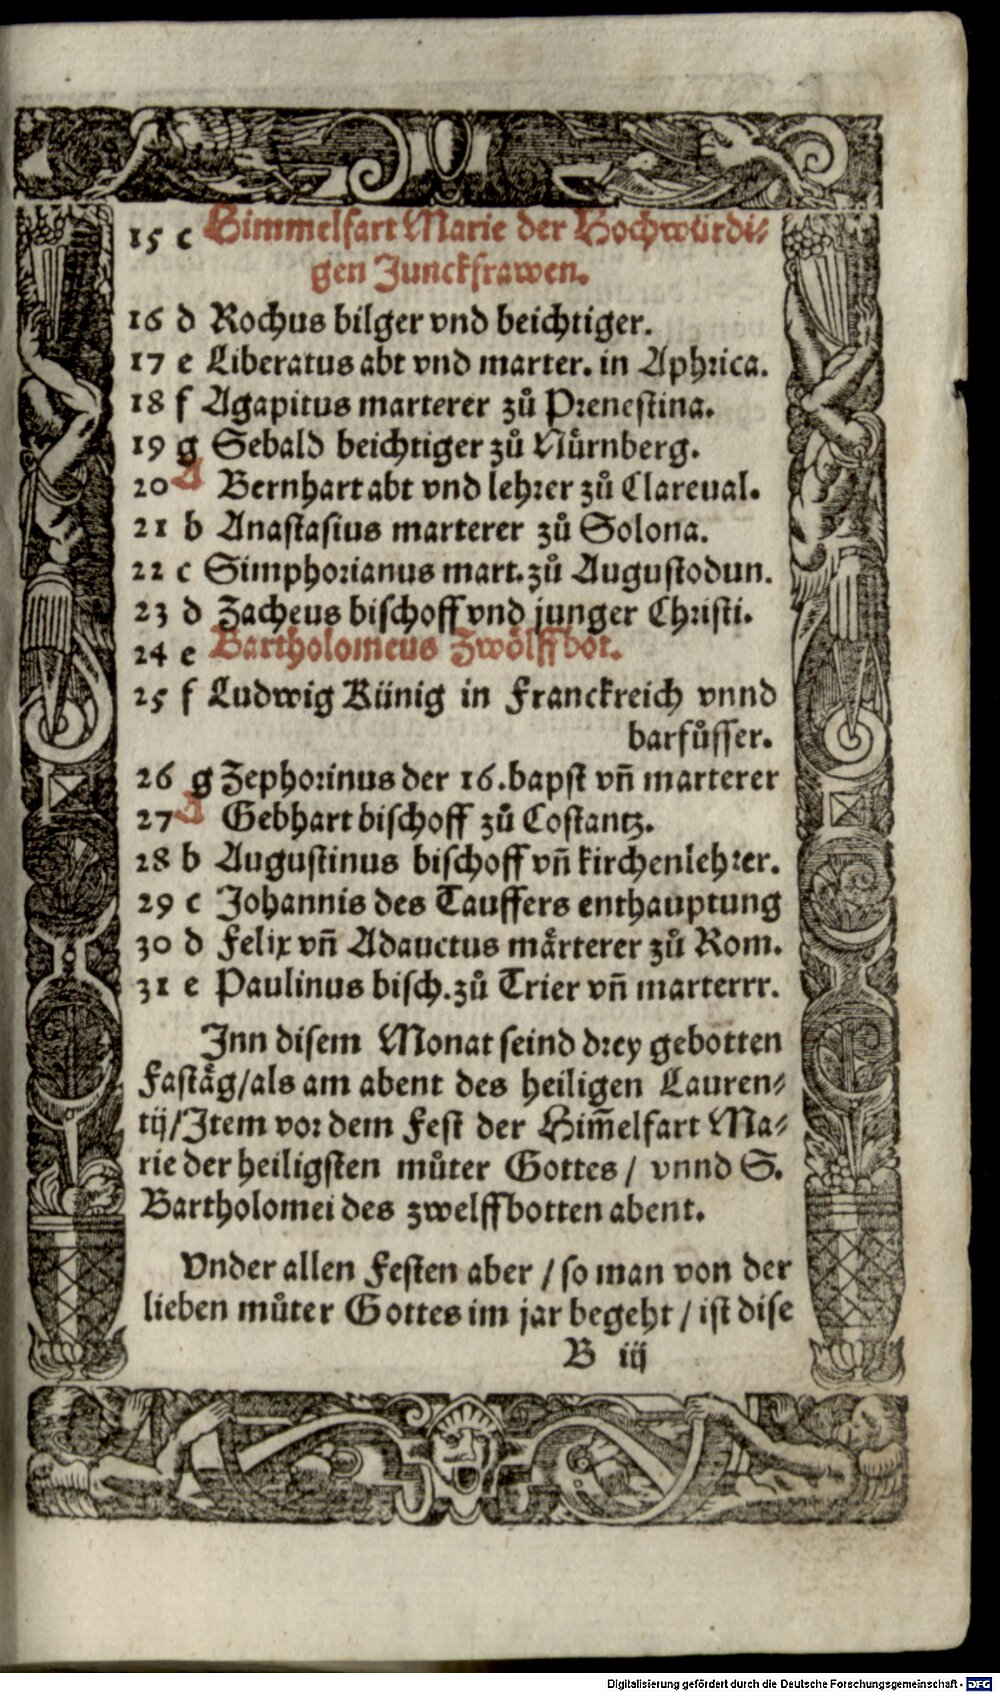 15 c Himmelfart Marie der Hochwürdi⸗
gen Junckfrawen.
16 d Rochus bilger vnd beichtiger.
17 e Liberatus abt vnd marter. in Aphrica.
18 f Agapitus marterer zů Prenestina.
19 g Sebald beichtiger zů Nürnberg.
20 A Bernhart abt vnd lehrer zů Clareual.
21 b Anastasius marterer zů Solona.
22 c Simphorianus mart. zů Augustodun.
23 d Zacheus bischoff vnd junger Christi.
24 e Bartholomeus Zwölffbot.
25 f Ludwig Künig in Franckreich vnnd
barfůsser.
26 g Zephorinus der 16. bapst vñ marterer
27 A Gebhart bischoff zů Costantz.
28 b Augustinus bischoff vñ kirchenlehrer.
29 c Johannis des Tauffers enthauptung
30 d Felix vñ Adauctus märterer zů Rom.
31 e Paulinus bisch. zů Trier vñ marterrr.
Inn disem Monat seind drey gebotten
Fastäg/ als am abent des heiligen Lauren⸗
tij/ Item vor dem Fest der Him̃elfart Ma⸗
rie der heiligsten můter Gottes / vnnd S.
Bartholomei des zwelffbotten abent.
Vnder allen Festen aber / so man von der
lieben můter Gottes im jar begeht / ist dise
B iij
Digitalisierung gefördert durch die Deutsche Forschungsgemeinschaft - DFG